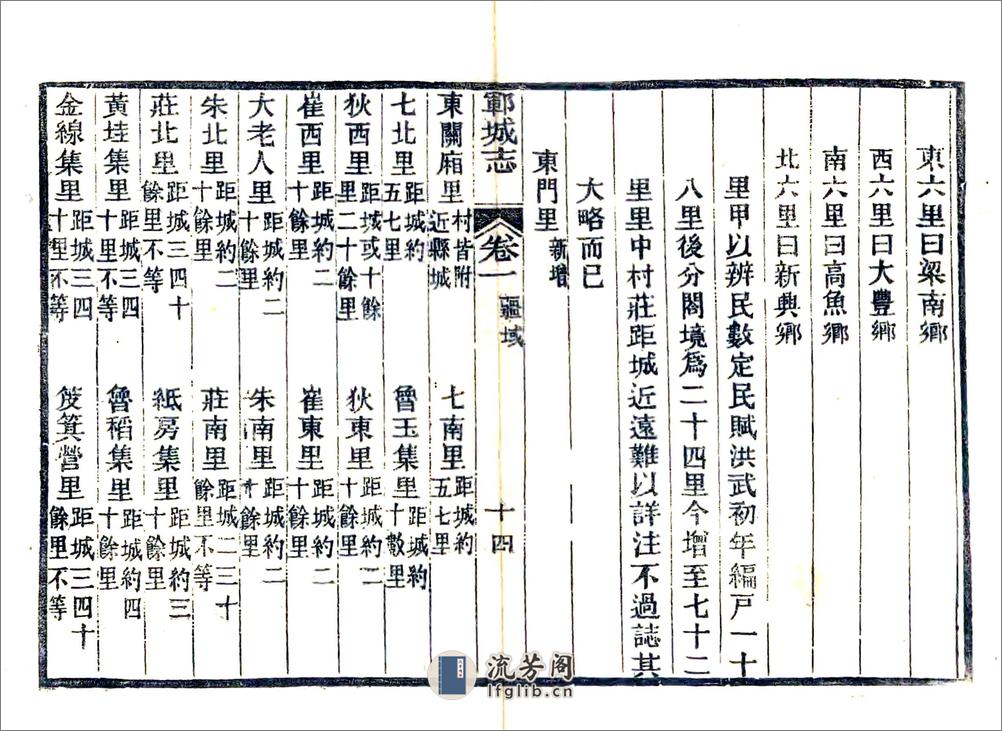 東六里曰梁南鄉
西六里曰大豐鄉
南六里曰高魚鄉
北六里曰新興鄉
里甲以辨民數定民賦洪武初年編戸一十
八里後分闔境爲二十四里今增至七十二
里里中村莊距城近遠難以詳注不過誌其
大略而已
東門里新增
鄆城志 卷一 疆域 十四
東關廂里村皆附近縣城 七南里距城約五七里
七北里距城約五七里 魯玉集里距城約十數里
狄西里距城或十餘里二十餘里 狄東里距城約二十餘里
崔西里距城約二十餘里 崔東里距城約二十餘里
大老人里距城約二十餘里 朱南里距城約二十餘里
朱北里距城約二十餘里 莊南里距城二三十餘里不等
莊北里距城三四十餘里不等 紙房集里距城約三十餘里
黃垓集里距城三四十里不等 魯稻集里距城約四十餘里
金線集里距城三四十里不等 笅箕營里距城三四十餘里不等
流芳阁
lfglib.cn